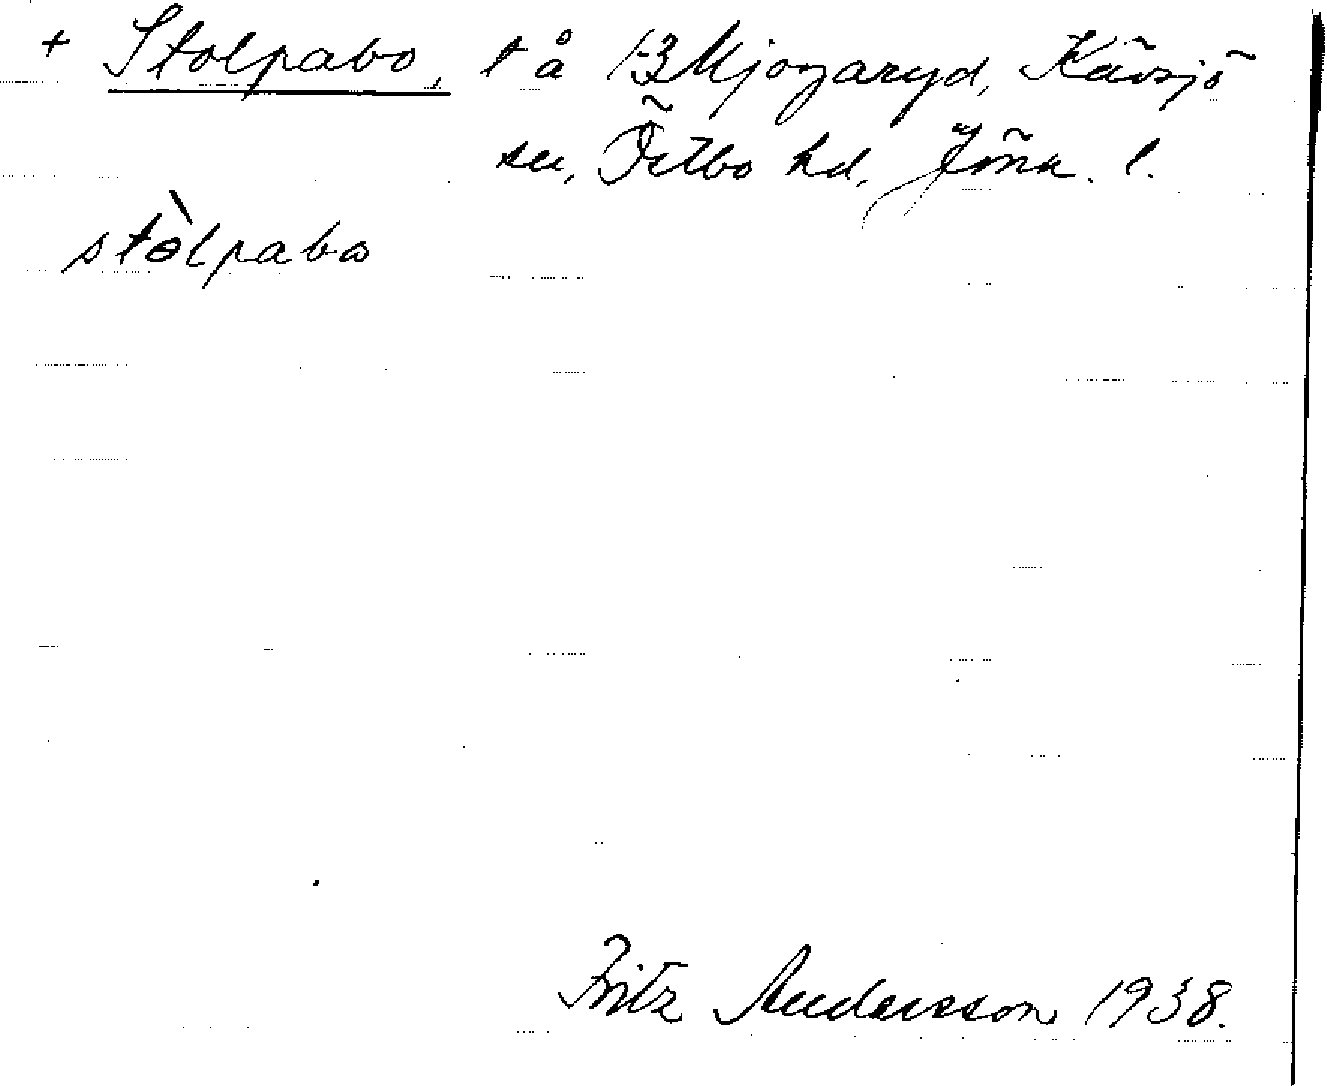 + Stolpabo, t å 1-3 Mjogaryd, Kävsjö
sn, Östbo hd, Jönk. l.
stòlpabo
Fritz Andersson 1938.